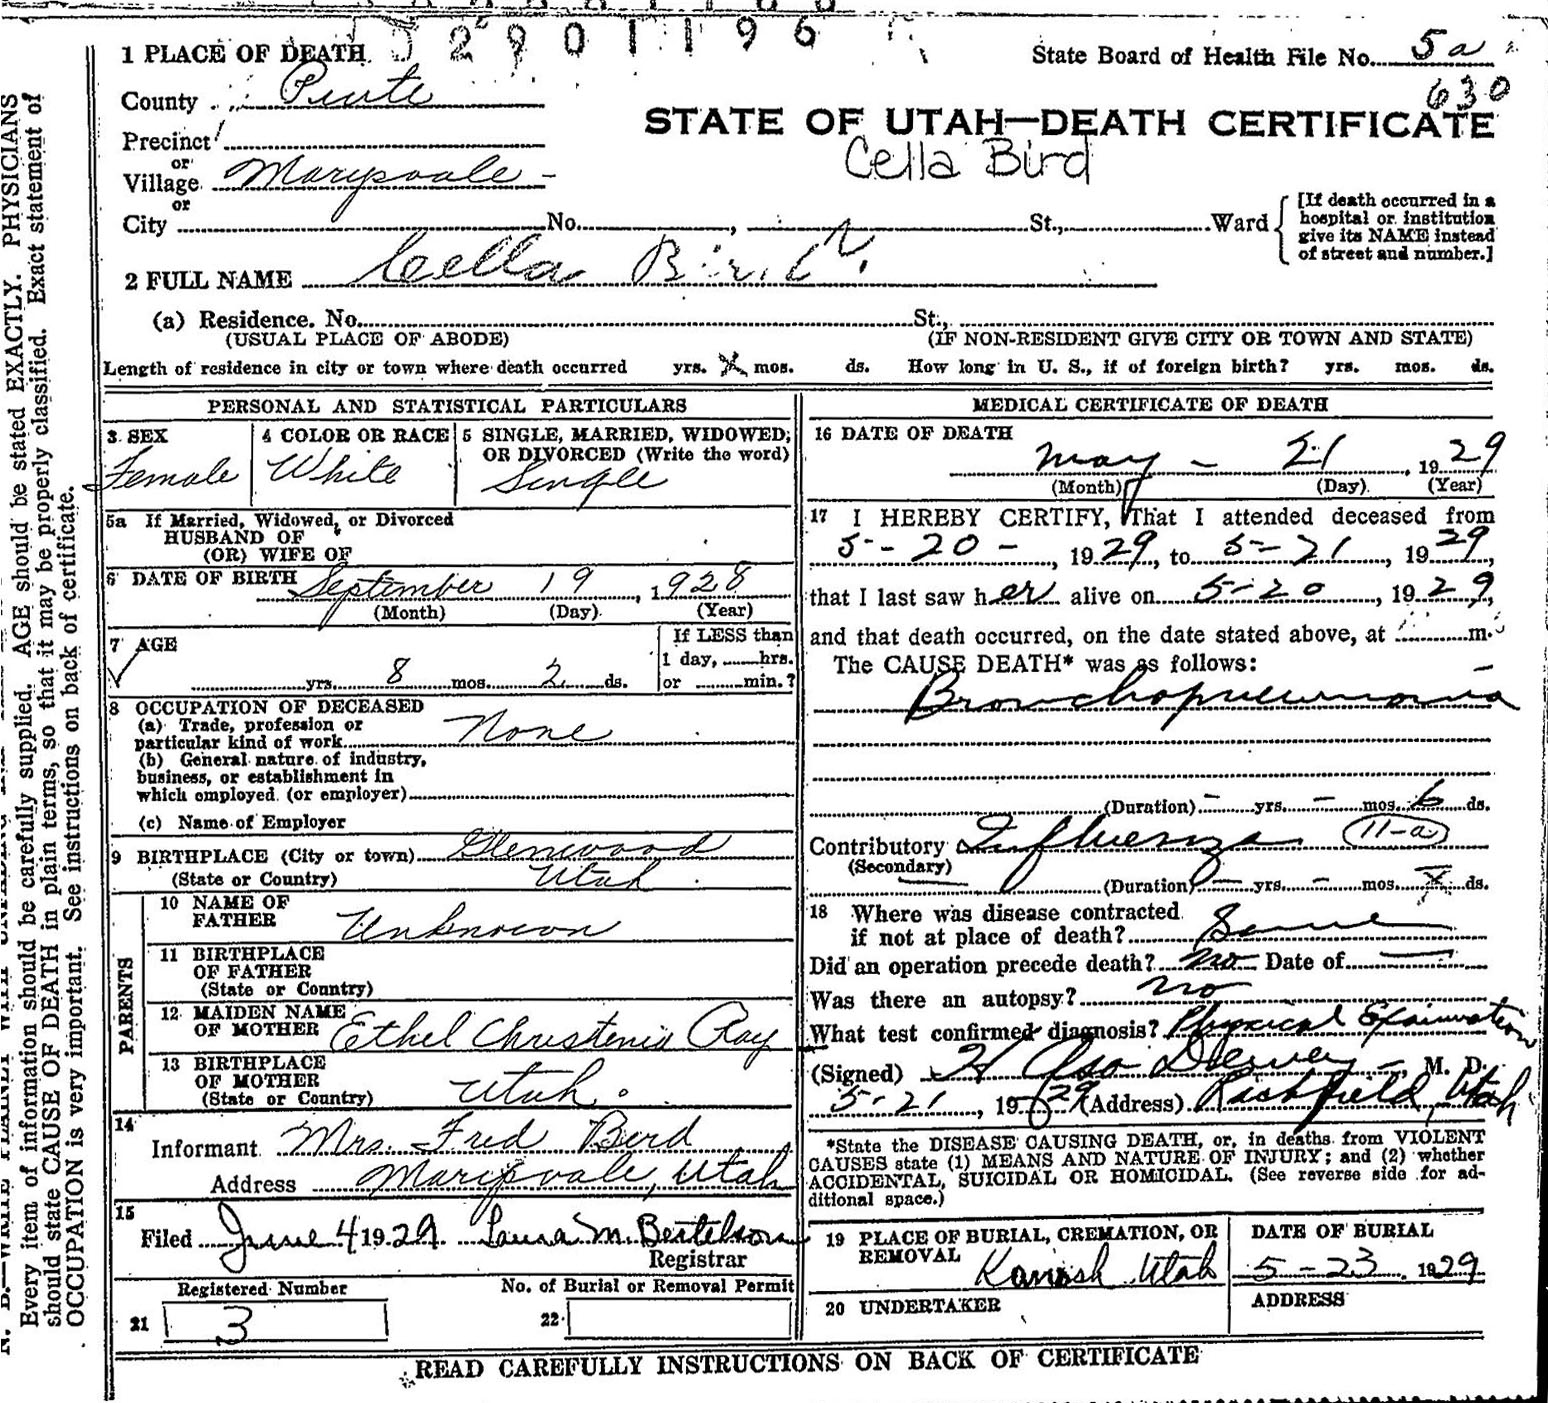 2901196
1 PLACE OF DEATH
State Board of Health File No. 5a
630
County Piute
STATE OF UTAH—DEATH CERTIFICATE
Precinct
or
Cella Bird
Village Marysvale -
or
City No. , St., Ward
[If death occurred in a hospital or institution give its NAME instead of street and number.]
2 FULL NAME Cella Bird
(a) Residence. No. St.,
(USUAL PLACE OF ABODE) (IF NON-RESIDENT GIVE CITY OR TOWN AND STATE)
Length of residence in city or town where death occurred yrs. X mos. ds. How long in U. S., if of foreign birth? yrs. mos. ds.
PERSONAL AND STATISTICAL PARTICULARS
3 SEX
Female
4 COLOR OR RACE
White
5 SINGLE, MARRIED, WIDOWED,
OR DIVORCED (Write the word)
Single
5a If Married, Widowed, or Divorced
HUSBAND OF
(OR) WIFE OF
6 DATE OF BIRTH September 19, 1928
(Month) (Day) (Year)
7 AGE
yrs. 8 mos. 2 ds.
If LESS than
1 day, hrs.
or min.?
8 OCCUPATION OF DECEASED
(a) Trade, profession or
particular kind of work None
(b) General nature of industry,
business, or establishment in
which employed (or employer)
(c) Name of Employer
9 BIRTHPLACE (City or town) Glenwood
(State or Country) Utah
PARENTS
10 NAME OF
FATHER Unknown
11 BIRTHPLACE
OF FATHER
(State or Country)
12 MAIDEN NAME
OF MOTHER Ethel Christenia Ray
13 BIRTHPLACE
OF MOTHER
(State or Country) Utah.
14
Informant Mrs. Fred Bird
Address Marysvale, Utah
15
Filed June 4 1929 Laura M. Bertelson
Registrar
Registered Number
21 3
No. of Burial or Removal Permit
22
MEDICAL CERTIFICATE OF DEATH
16 DATE OF DEATH
May - 21, 1929
(Month) (Day) (Year)
17 I HEREBY CERTIFY, That I attended deceased from
5-20-, 1929, to 5-21, 1929,
that I last saw her alive on 5-20, 1929,
and that death occurred, on the date stated above, at m.
The CAUSE DEATH* was as follows:
Bronchopneumonia
(Duration) - yrs. - mos. 6 ds.
Contributory Influenza 11-a
(Secondary)
(Duration) - yrs. - mos. ds.
18 Where was disease contracted
if not at place of death? Same
Did an operation precede death? No Date of
Was there an autopsy? No
What test confirmed diagnosis? Physical Examination
(Signed) H , M. D.
5-21, 1929 (Address) Richfield, Utah
*State the DISEASE CAUSING DEATH, or, in deaths from VIOLENT
CAUSES state (1) MEANS AND NATURE OF INJURY; and (2) whether
ACCIDENTAL, SUICIDAL OR HOMICIDAL. (See reverse side for ad-
ditional space.)
19 PLACE OF BURIAL, CREMATION, OR
REMOVAL Kanosh Utah
DATE OF BURIAL
5-23, 1929
20 UNDERTAKER
ADDRESS
READ CAREFULLY INSTRUCTIONS ON BACK OF CERTIFICATE
Every item of information should be carefully supplied. AGE should be stated EXACTLY. PHYSICIANS
should state CAUSE OF DEATH in plain terms, so that it may be properly classified. Exact statement of
OCCUPATION is very important. See instructions on back of certificate.